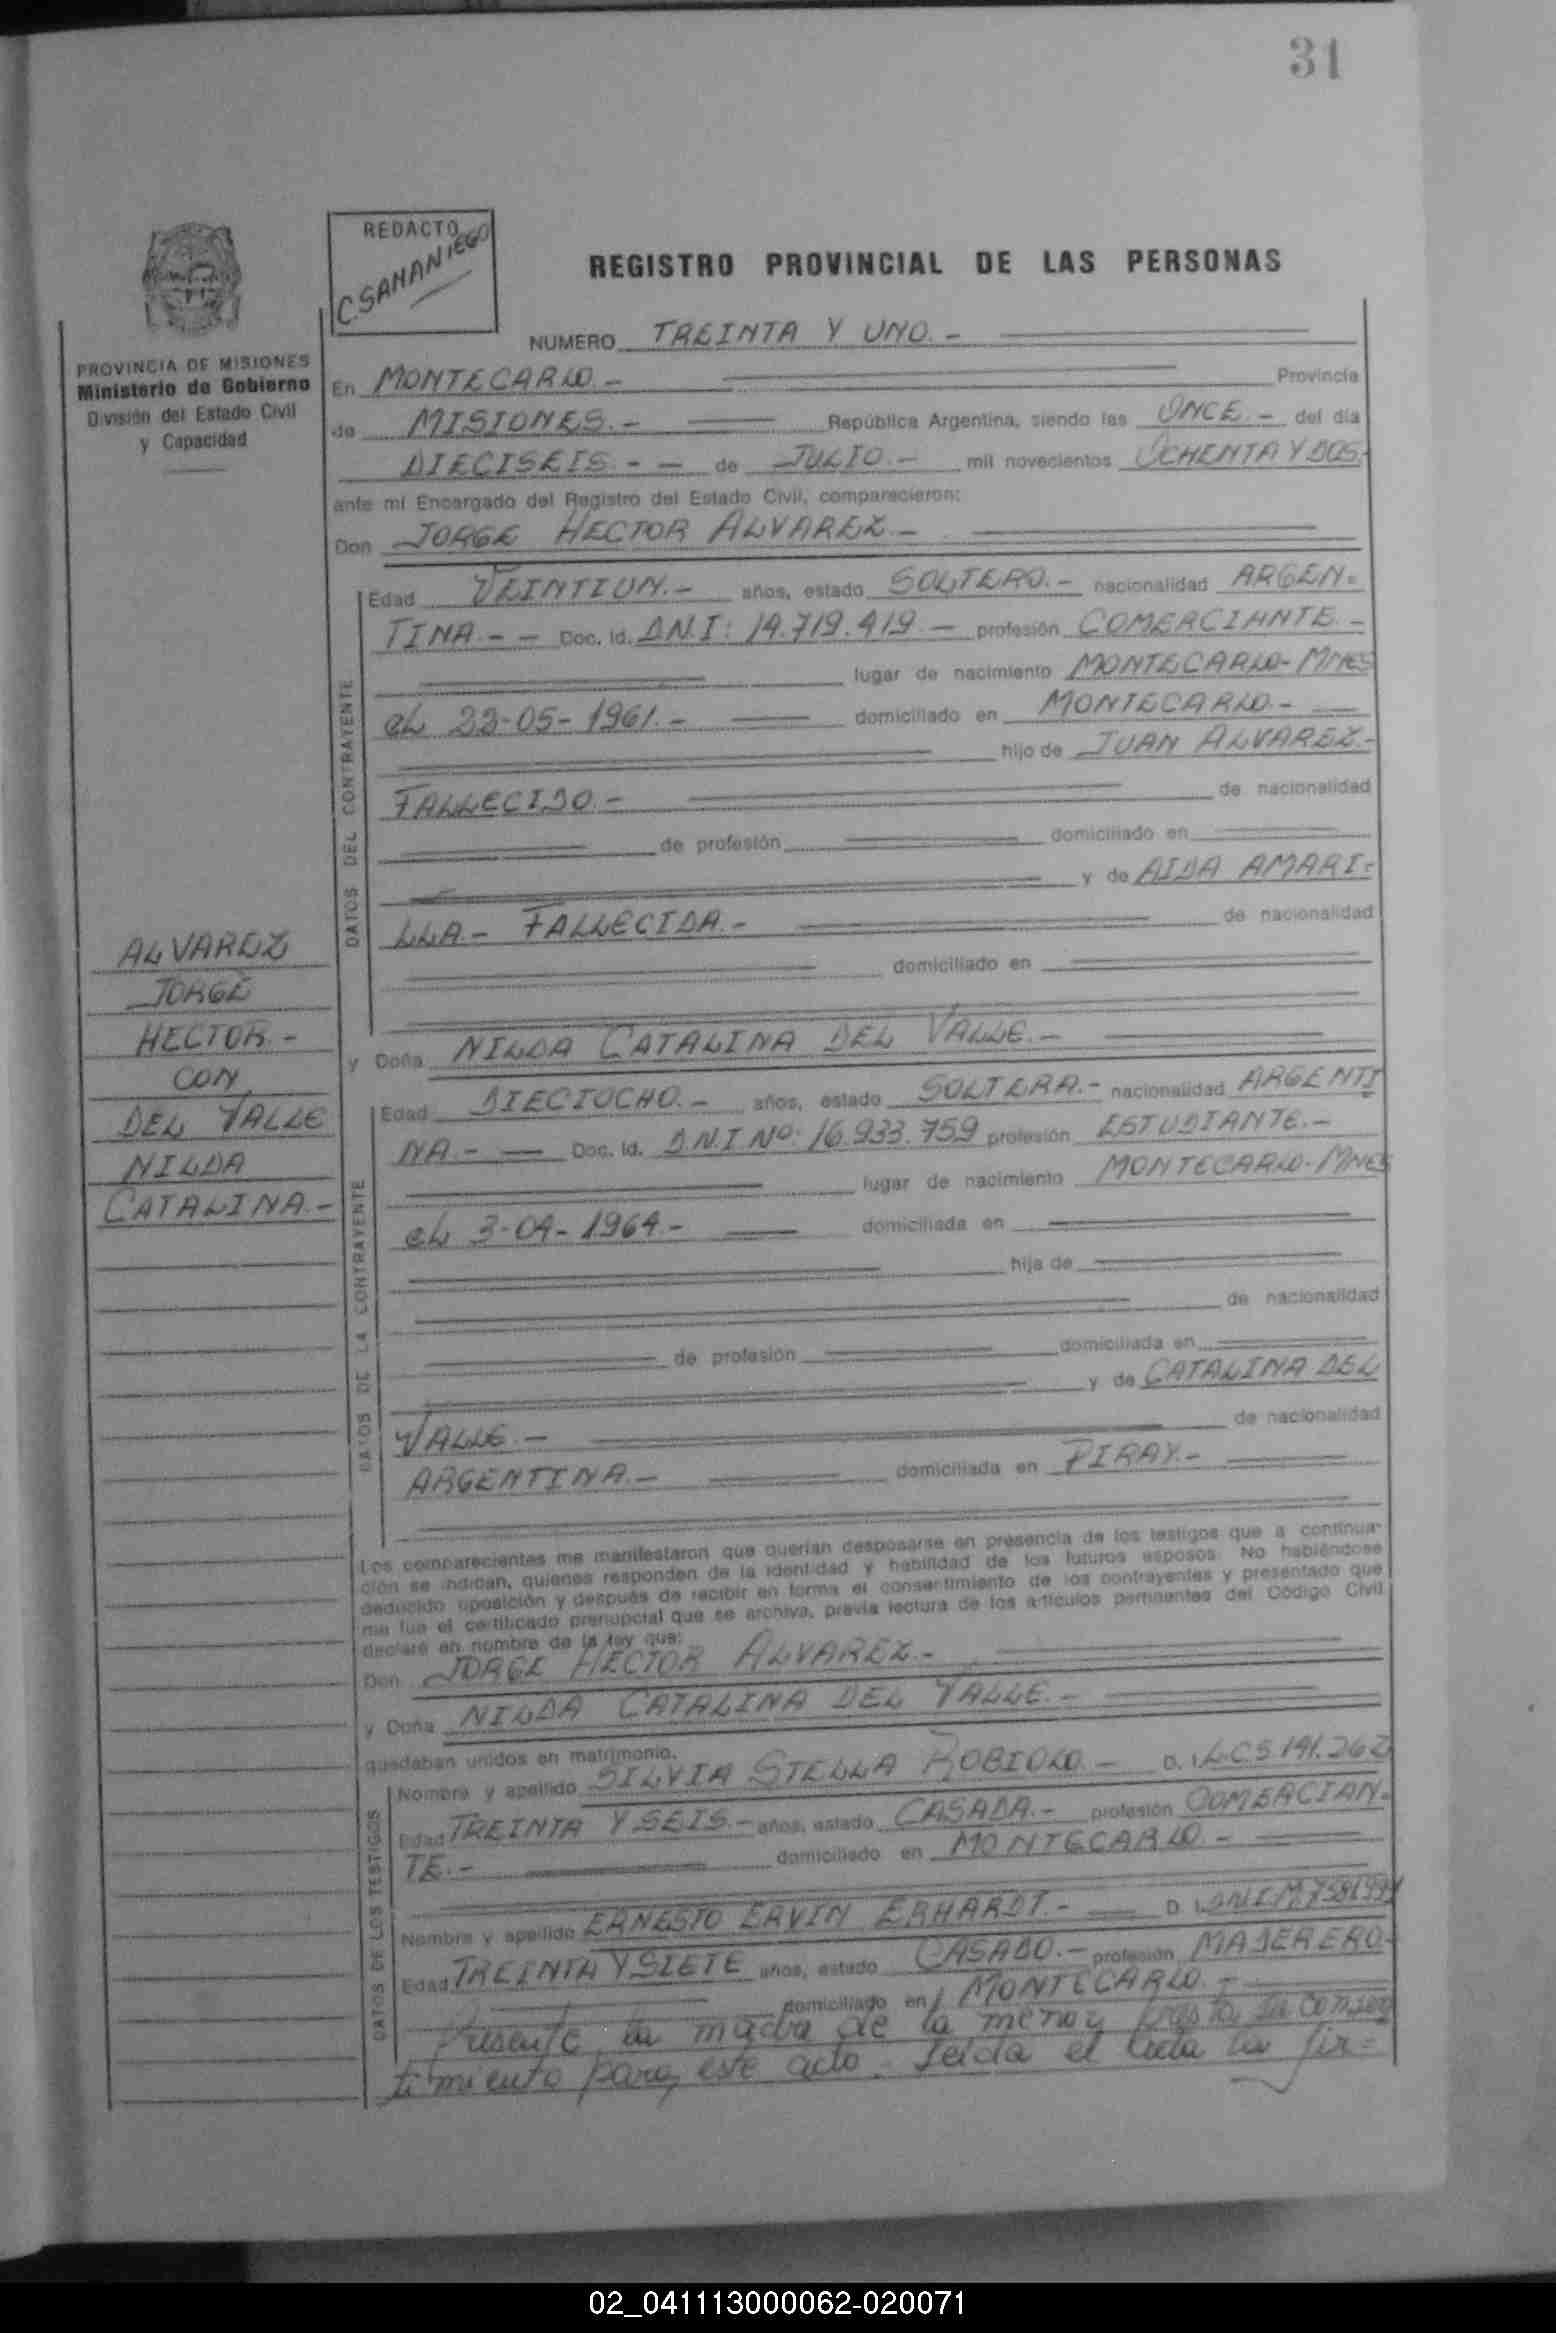 31
REDACTO
C SAMANIEGO
REGISTRO PROVINCIAL DE LAS PERSONAS
PROVINCIA DE MISIONES
Ministerio de Gobierno
División del Estado Civil
y Capacidad
NUMERO TREINTA Y UNO.-
En MONTECARLO.- Provincia
de MISIONES.- República Argentina, siendo las ONCE.- del día
DIECISEIS.- - de JULIO.- mil novecientos OCHENTA Y DOS.
ante mí Encargado del Registro del Estado Civil, comparecieron:
Don JORGE HECTOR ALVAREZ.-
DATOS DEL CONTRAYENTE
Edad VEINTIUN.- años, estado SOLTERO.- nacionalidad ARGEN-
TINA.- - Doc. Id. D.N.I: 14.719.419.- profesión COMERCIANTE.-
lugar de nacimiento MONTECARLO-MNES
el 22-05-1961.- domiciliado en MONTECARLO.-
hijo de JUAN ALVAREZ.-
FALLECIDO.- de nacionalidad
de profesión domiciliado en
y de AIDA AMARI-
LLA.- FALLECIDA.- de nacionalidad
domiciliado en
ALVAREZ
JORGE
HECTOR.-
CON
DEL VALLE
NILDA
CATALINA.-
y Doña NILDA CATALINA DEL VALLE.-
DATOS DE LA CONTRAYENTE
Edad DIECIOCHO.- años, estado SOLTERA.- nacionalidad ARGENTI
NA.- Doc. Id. D.N.I Nº: 16.933.759 profesión ESTUDIANTE.-
lugar de nacimiento MONTECARLO-MNES
el 3-04-1964.- domiciliada en
hija de
de nacionalidad
de profesión domiciliada en
y de CATALINA DEL
VALLE.- de nacionalidad
ARGENTINA.- domiciliada en PIRAY.-
Los comparecientes me manifestaron que querían desposarse en presencia de los testigos que a continua-
ción se indican, quienes responden de la identidad y habilidad de los futuros esposos. No habiéndose
deducido oposición y después de recibir en forma el consentimiento de los contrayentes y presentado que
me fue el certificado prenupcial que se archiva, previa lectura de los artículos pertinentes del Código Civil
declaré en nombre de la ley que:
Don JORGE HECTOR ALVAREZ.-
y Doña NILDA CATALINA DEL VALLE.-
quedaban unidos en matrimonio.
DATOS DE LOS TESTIGOS
Nombre y apellido SILVIA STELLA ROBIOLO.- D. I. L.C 5.191.262
Edad TREINTA Y SEIS.- años, estado CASADA.- profesión COMERCIAN-
TE.- domiciliado en MONTECARLO.-
Nombre y apellido ERNESTO ERVIN ERHARDT.- D. I. DNI M. 7581991
Edad TREINTA Y SIETE años, estado CASADO.- profesión MADERERO-
domiciliado en MONTECARLO.-
Presente la madre de la menor presta su consen
timiento para este acto. Leída el acta la fir=
02_041113000062-020071